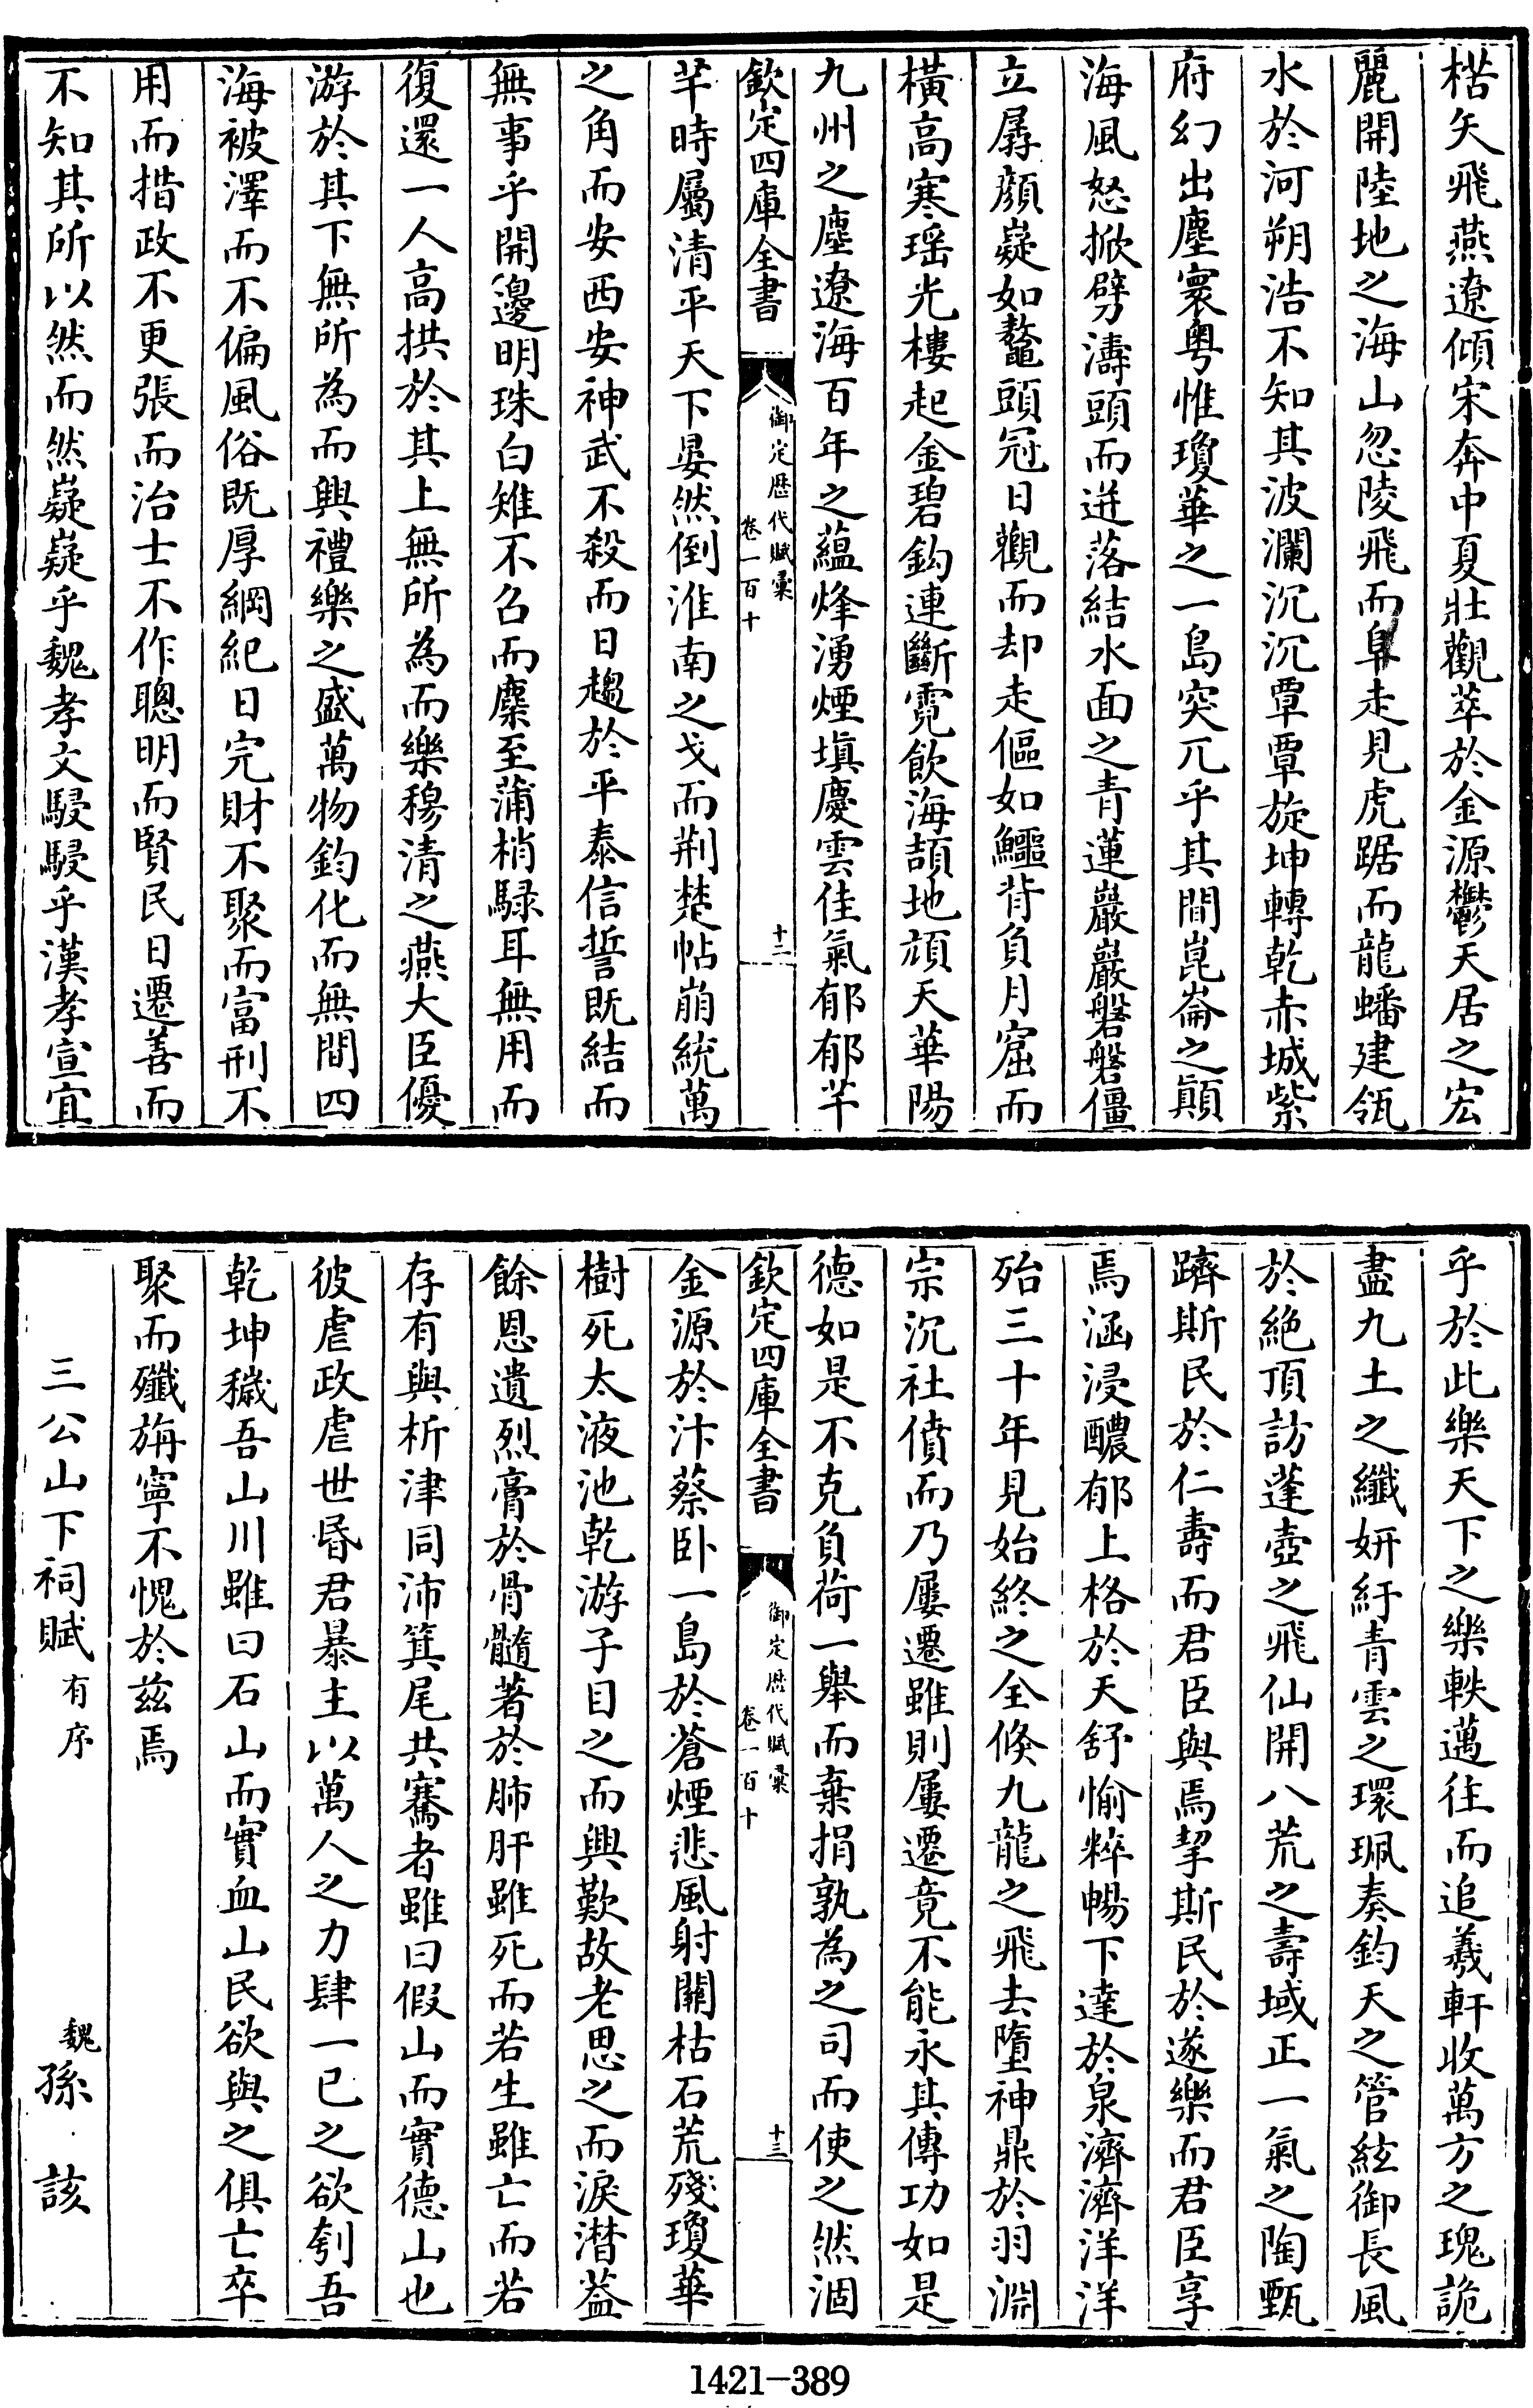 楛矢飛燕遼傾宋奔中夏壯觀萃於金源鬱天居之宏
麗開陸地之海山忽陵飛而阜走見虎踞而龍蟠建瓴
水於河朔浩不知其波瀾沉沉覃覃旋坤轉乾赤城紫
府幻出塵寰粤惟瓊華之一島突兀乎其間崑崙之顛
海風怒掀劈濤頭而迸落結水面之青蓮巖巖磐磐僵
立孱顔嶷如鼇頭冠日觀而却走傴如鱷背負月窟而
横高寒瑶光樓起金碧鈎連斷霓飲海頡地頏天華陽
九州之塵遼海百年之藴烽湧煙塡慶雲佳氣郁郁芊
欽定四庫全書
御定歴代賦彙
卷一百十
十二
芊時屬清平天下晏然倒淮南之戈而荆楚帖崩統萬
之角而安西安神武不殺而日趨於平泰信誓既結而
無事乎開邊明珠白雉不召而麇至蒲梢騄耳無用而
復還一人高拱於其上無所為而樂穆清之燕大臣優
游於其下無所為而興禮樂之盛萬物鈞化而無間四
海被澤而不偏風俗既厚綱紀日完財不聚而富刑不
用而措政不更張而治士不作聰明而賢民日遷善而
不知其所以然而然嶷嶷乎魏孝文駸駸乎漢孝宣宜
乎於此樂天下之樂軼邁往而追羲軒收萬方之瑰詭
盡九土之纖妍紆青雲之環珮奏鈞天之管絃御長風
於絶頂訪蓬壺之飛仙開八荒之壽域正一氣之陶甄
躋斯民於仁壽而君臣與焉挈斯民於遂樂而君臣享
焉涵浸醲郁上格於天舒愉粹暢下達於泉濟濟洋洋
殆三十年見始終之全倐九龍之飛去墮神鼎於羽淵
宗沉社僨而乃屢遷雖則屢遷竟不能永其傳功如是
德如是不克負荷一舉而棄捐孰為之司而使之然涸
欽定四庫全書
御定歴代賦彙
卷一百十
十三
金源於汴蔡卧一島於蒼煙悲風射關枯石荒殘瓊華
樹死太液池乾游子目之而興歎故老思之而淚潸葢
餘恩遺烈膏於骨髓著於肺肝雖死而若生雖亡而若
存有與析津同沛箕尾共騫者雖曰假山而實德山也
彼虐政虐世昏君暴主以萬人之力肆一已之欲刳吾
乾坤穢吾山川雖曰石山而實血山民欲與之俱亡卒
聚而殲旃寧不愧於兹焉
三公山下祠賦有序
魏孫該
1421-389